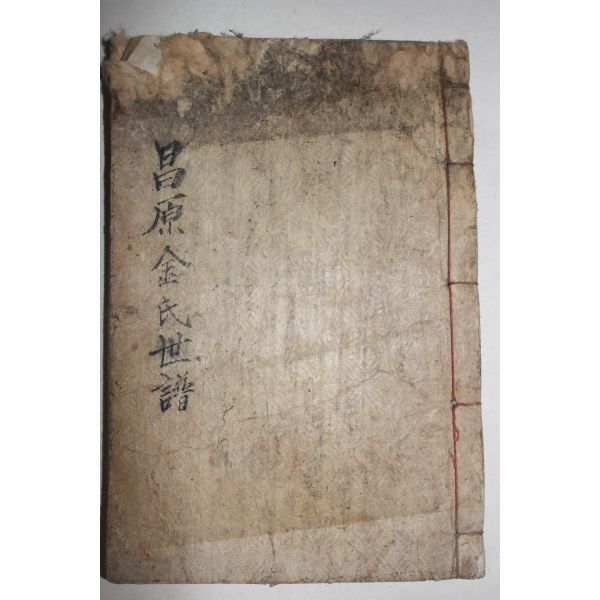 昌原金氏世譜